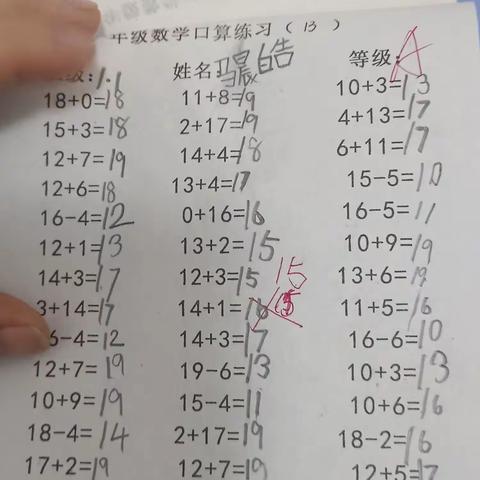 年级数学口算练习(13)
级:1.1 姓名 皓 等级:A
18+0=18 11+8=19 10+3=13
15+3=18 2+17=19 4+13=17
12+7=19 14+4=18 6+11=17
12+6=18 13+4=17 15-5=10
16-4=12 0+16=16 16-5=11
12+1=13 13+2=15 10+9=19
14+3=17 12+3=15 13+6=19
3+14=17 14+1=16 15 11+5=16
6-4=12 14+3=17 16-6=10
12+7=19 19-6=13 10+3=13
10+9=19 15-4=11 10+6=16
18-4=14 2+17=19 18-2=16
17+2=19 12+7=19 12+5=17